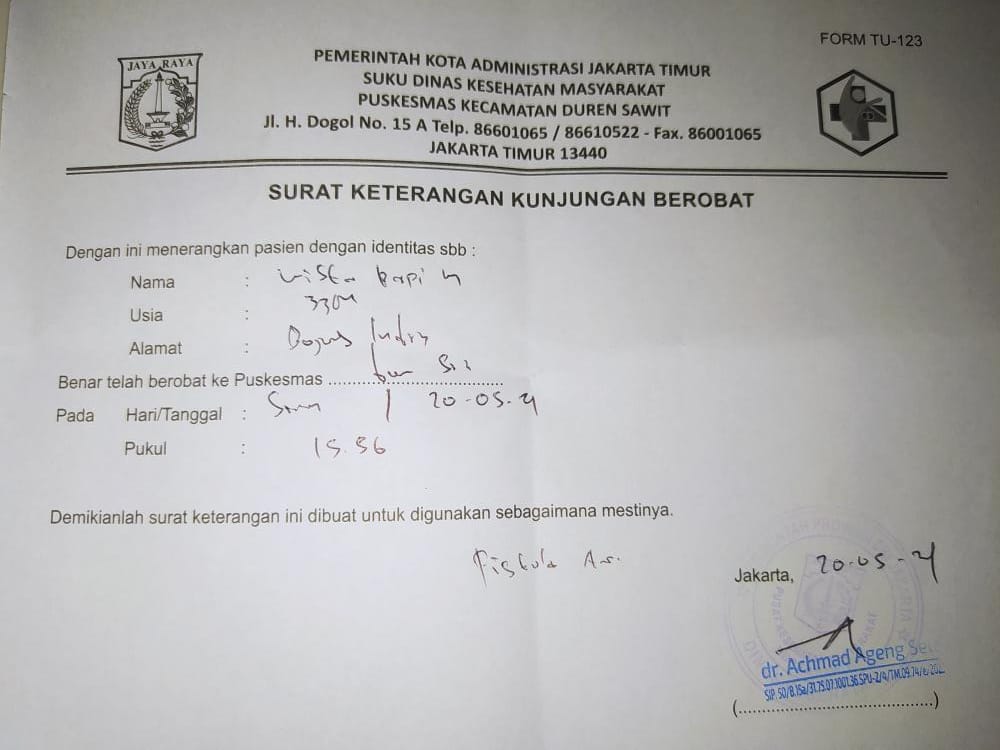 FORM TU-123
JAYA RAYA
PEMERINTAH KOTA ADMINISTRASI JAKARTA TIMUR
SUKU DINAS KESEHATAN MASYARAKAT
PUSKESMAS KECAMATAN DUREN SAWIT
Jl. H. Dogol No. 15 A Telp. 86601065 / 86610522 - Fax. 86001065
JAKARTA TIMUR 13440
SURAT KETERANGAN KUNJUNGAN BEROBAT
Dengan ini menerangkan pasien dengan identitas sbb :
Nama :
Usia :
Alamat :
Benar telah berobat ke Puskesmas ..............................
Pada Hari/Tanggal : / 20-05-21
Pukul : 15.56
Demikianlah surat keterangan ini dibuat untuk digunakan sebagaimana mestinya.
Fistula
Jakarta, 20-05-21
dr. Achmad Ageng
(........................................)